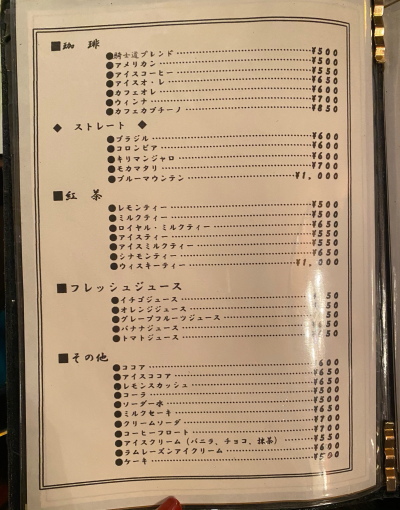 ■珈 琲
●騎士道ブレンド ¥500
●アメリカン ¥500
●アイスコーヒー ¥550
●アイスオ・レ ¥650
●カフェオレ ¥600
●ウィンナ ¥700
●カフェカプチーノ ¥850
◆ ストレート ◆
●ブラジル ¥600
●コロンビア ¥600
●キリマンジャロ ¥600
●モカマタリ ¥700
●ブルーマウンテン ¥1,000
■紅 茶
●レモンティー ¥500
●ミルクティー ¥500
●ロイヤル・ミルクティー ¥650
●アイスティー ¥550
●アイスミルクティー ¥550
●シナモンティー ¥650
●ウィスキーティー ¥1,000
■フレッシュジュース
●イチゴジュース
●オレンジジュース
●グレープフルーツジュース
●バナナジュース
●トマトジュース
■その他
●ココア ¥600
●アイスココア ¥650
●レモンスカッシュ ¥650
●コーラ ¥500
●ソーダー水 ¥500
●ミルクセーキ ¥650
●クリームソーダ ¥700
●コーヒーフロート ¥700
●アイスクリーム(バニラ、チョコ、抹茶) ¥550
●ラムレーズンアイクリーム ¥600
●ケーキ ¥500